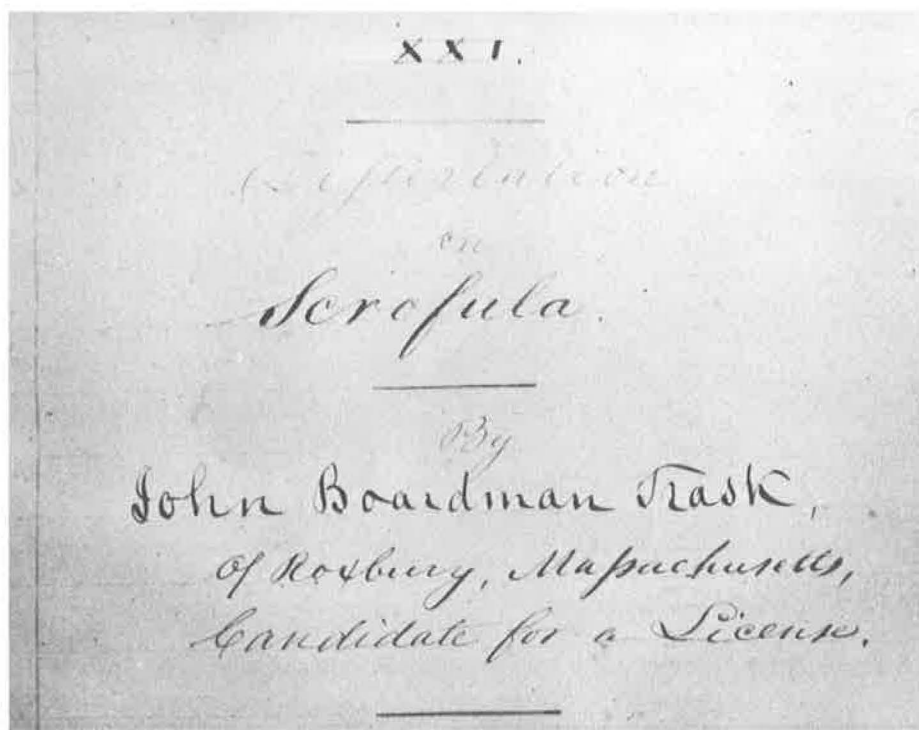 XXI.
Dissertation
on
Scrofula.
By
John Boardman Trask,
Of Roxbury, Massachusetts,
Candidate for a License.